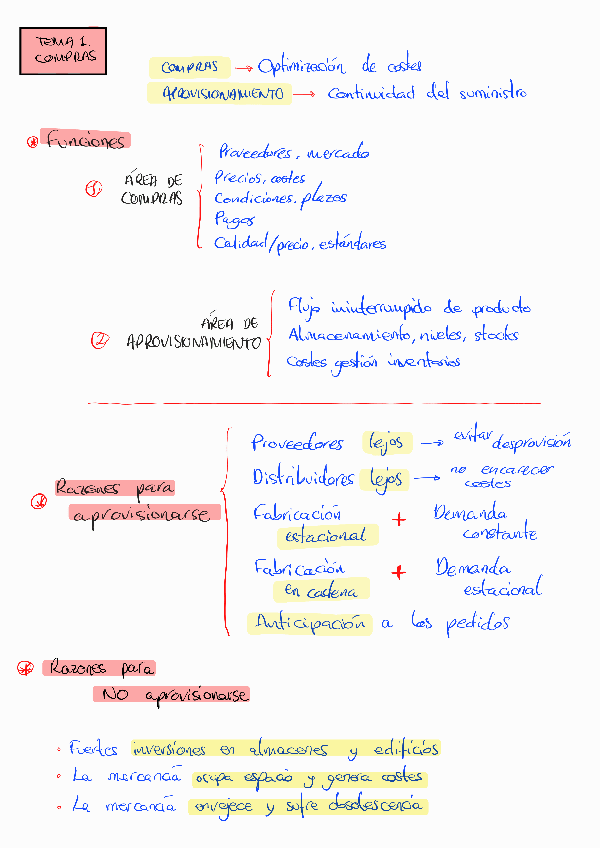 TEMA 1.
COMPRAS
COMPRAS → Optimización de costes
APROVISIONAMIENTO → Continuidad del suministro
* Funciones
1 ÁREA DE COMPRAS
Proveedores, mercado
Precios, costes
Condiciones, plazos
Pagos
Calidad/precio, estándares
2 ÁREA DE APROVISIONAMIENTO
Flujo ininterrumpido de producto
Almacenamiento, niveles, stocks
Costes gestión inventarios
* Razones para
aprovisionarse
Proveedores lejos → evitar desprovisión
Distribuidores lejos → no encarecer costes
Fabricación estacional + Demanda constante
Fabricación en cadena + Demanda estacional
Anticipación a los pedidos
* Razones para
NO aprovisionarse
• Fuertes inversiones en almacenes y edificios
• La mercancía ocupa espacio y genera costes
• La mercancía envejece y sufre obsolescencia